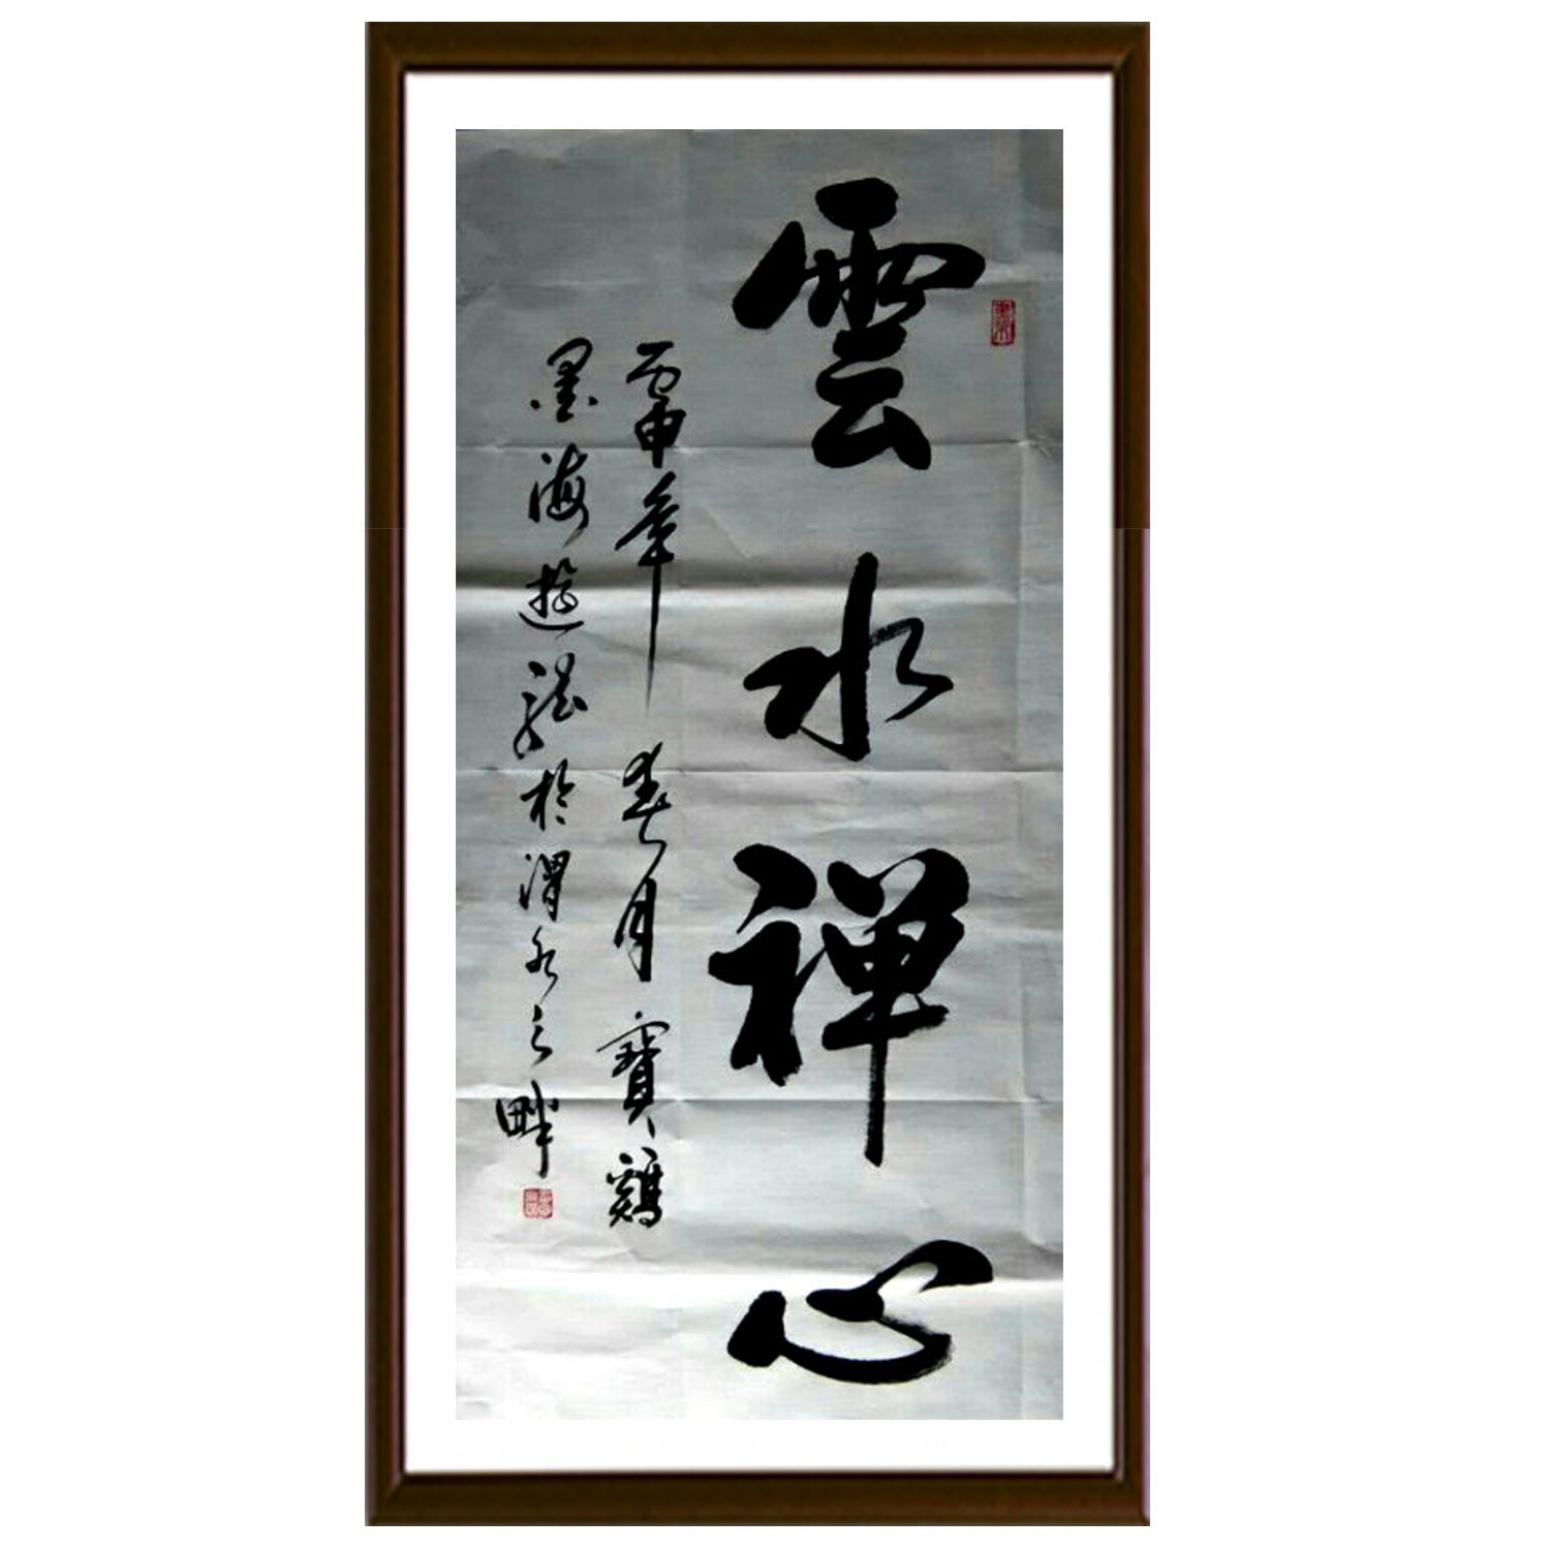 雲水禅心
丙申年春月寶鷄
墨海遊龍於渭水之畔